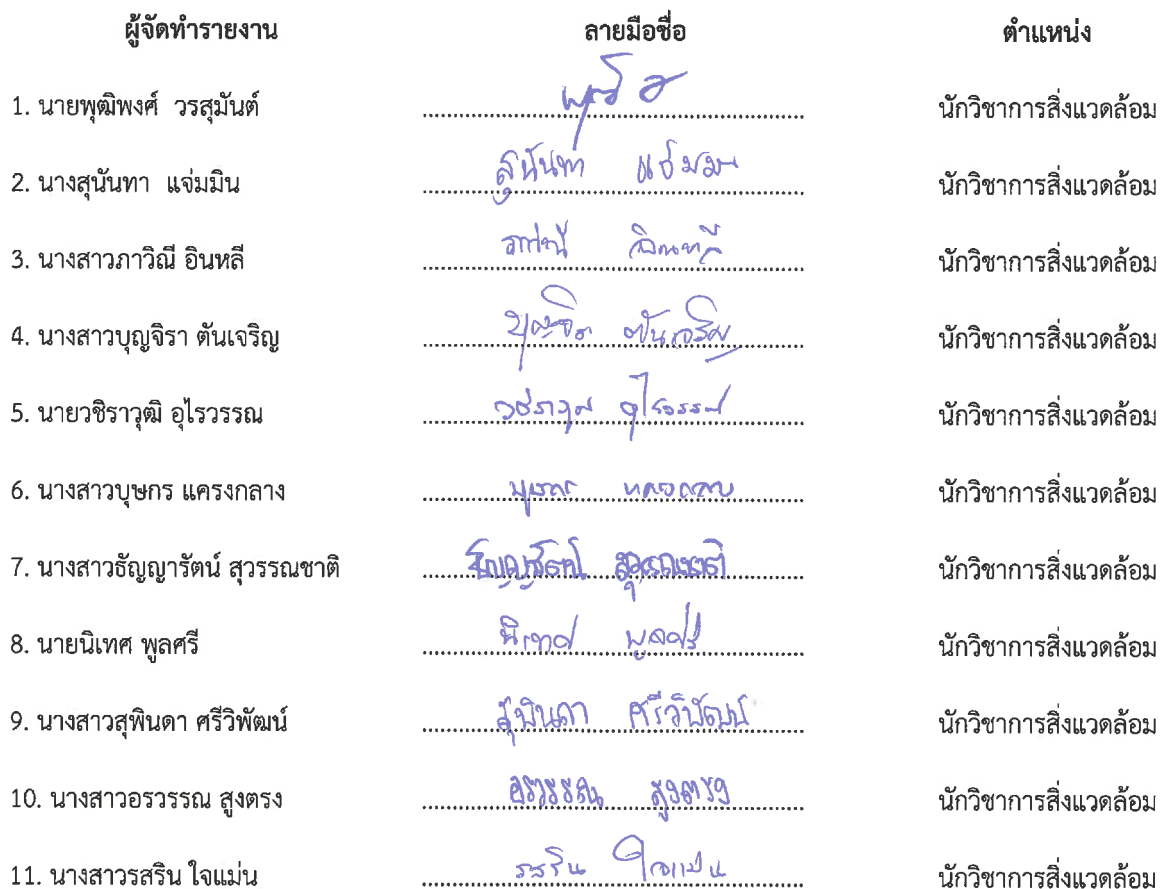 ผู้จัดทำรายงาน ลายมือชื่อ ตำแหน่ง
1. นายพุฒิพงศ์ วรสุมันต์ นักวิชาการสิ่งแวดล้อม
2. นางสุนันทา แจ่มมิน สุนันทา แจ่มมิน นักวิชาการสิ่งแวดล้อม
3. นางสาวภาวิณี อินหลี นักวิชาการสิ่งแวดล้อม
4. นางสาวบุญจิรา ตันเจริญ บุญจิรา ตันเจริญ นักวิชาการสิ่งแวดล้อม
5. นายวชิราวุฒิ อุไรวรรณ วชิราวุฒิ อุไรวรรณ นักวิชาการสิ่งแวดล้อม
6. นางสาวบุษกร แครงกลาง นักวิชาการสิ่งแวดล้อม
7. นางสาวธัญญารัตน์ สุวรรณชาติ ธัญญารัตน์ สุวรรณชาติ นักวิชาการสิ่งแวดล้อม
8. นายนิเทศ พูลศรี นิเทศ พูลศรี นักวิชาการสิ่งแวดล้อม
9. นางสาวสุพินดา ศรีวิพัฒน์ สุพินดา ศรีวิพัฒน์ นักวิชาการสิ่งแวดล้อม
10. นางสาวอรวรรณ สูงตรง อรวรรณ สูงตรง นักวิชาการสิ่งแวดล้อม
11. นางสาวรสริน ใจแม่น รสริน ใจแม่น นักวิชาการสิ่งแวดล้อม